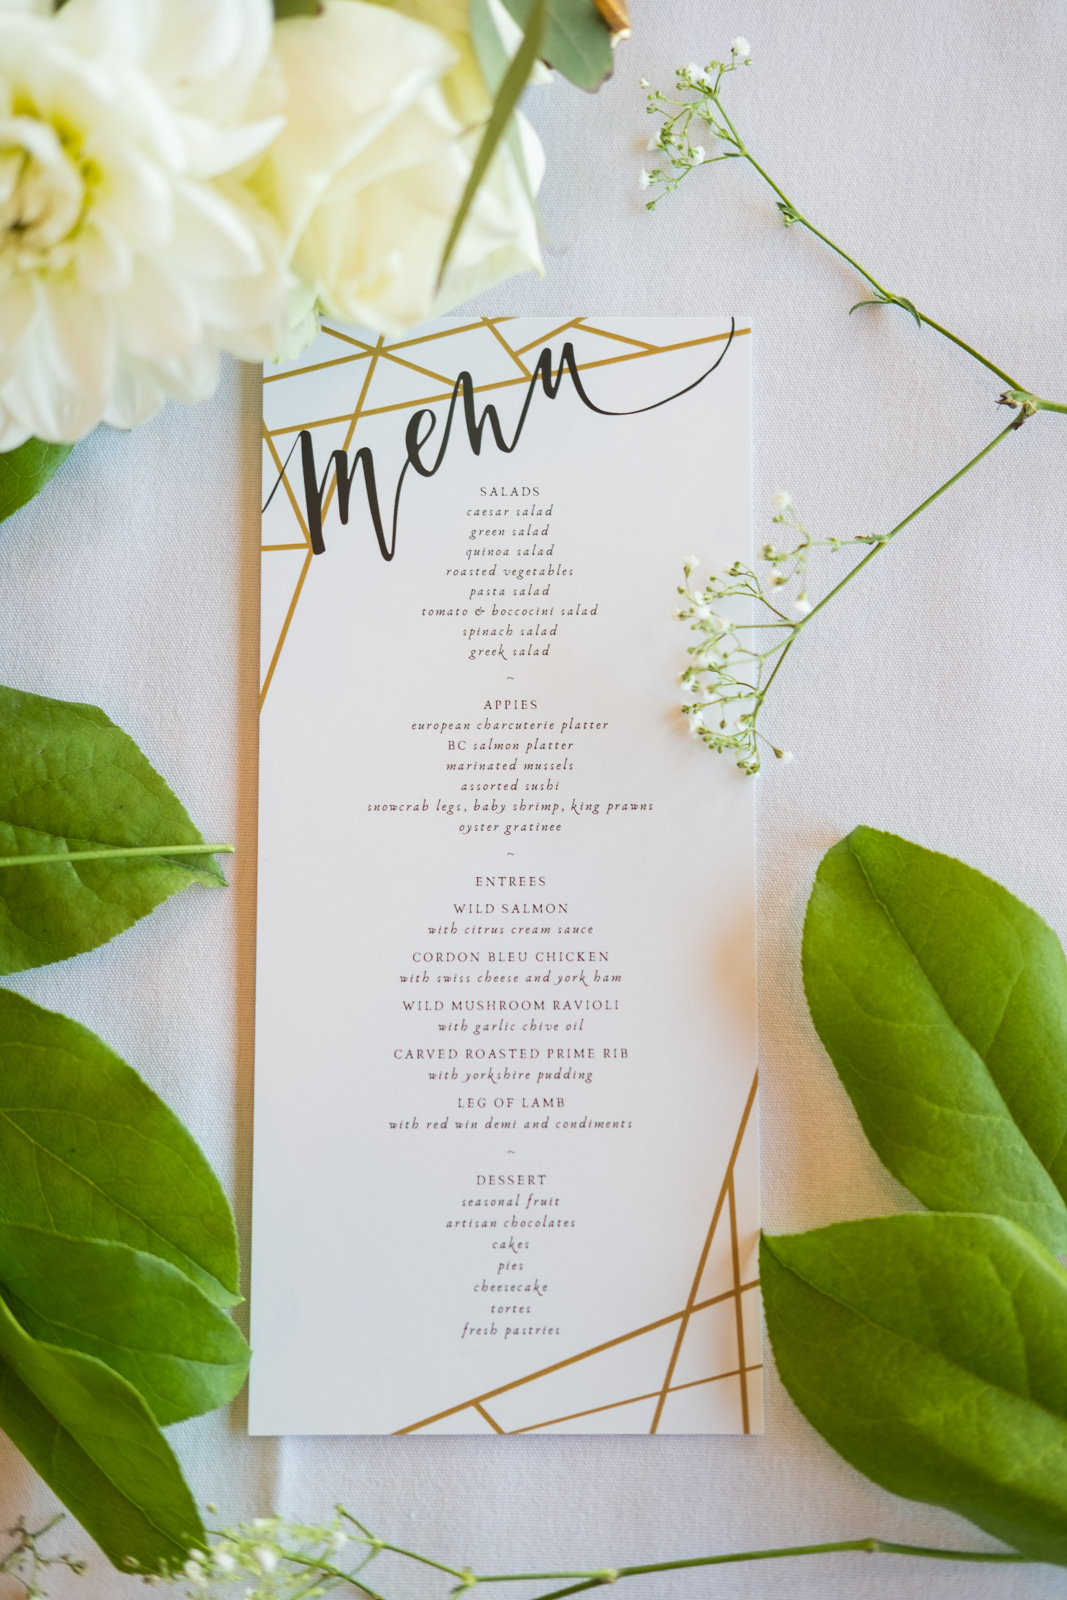 menu
SALADS
caesar salad
green salad
quinoa salad
roasted vegetables
pasta salad
tomato & boccocini salad
spinach salad
greek salad
~
APPIES
european charcuterie platter
BC salmon platter
marinated mussels
assorted sushi
snowcrab legs, baby shrimp, king prawns
oyster gratinee
~
ENTREES
WILD SALMON
with citrus cream sauce
CORDON BLEU CHICKEN
with swiss cheese and york ham
WILD MUSHROOM RAVIOLI
with garlic chive oil
CARVED ROASTED PRIME RIB
with yorkshire pudding
LEG OF LAMB
with red win demi and condiments
~
DESSERT
seasonal fruit
artisan chocolates
cakes
pies
cheesecake
tortes
fresh pastries